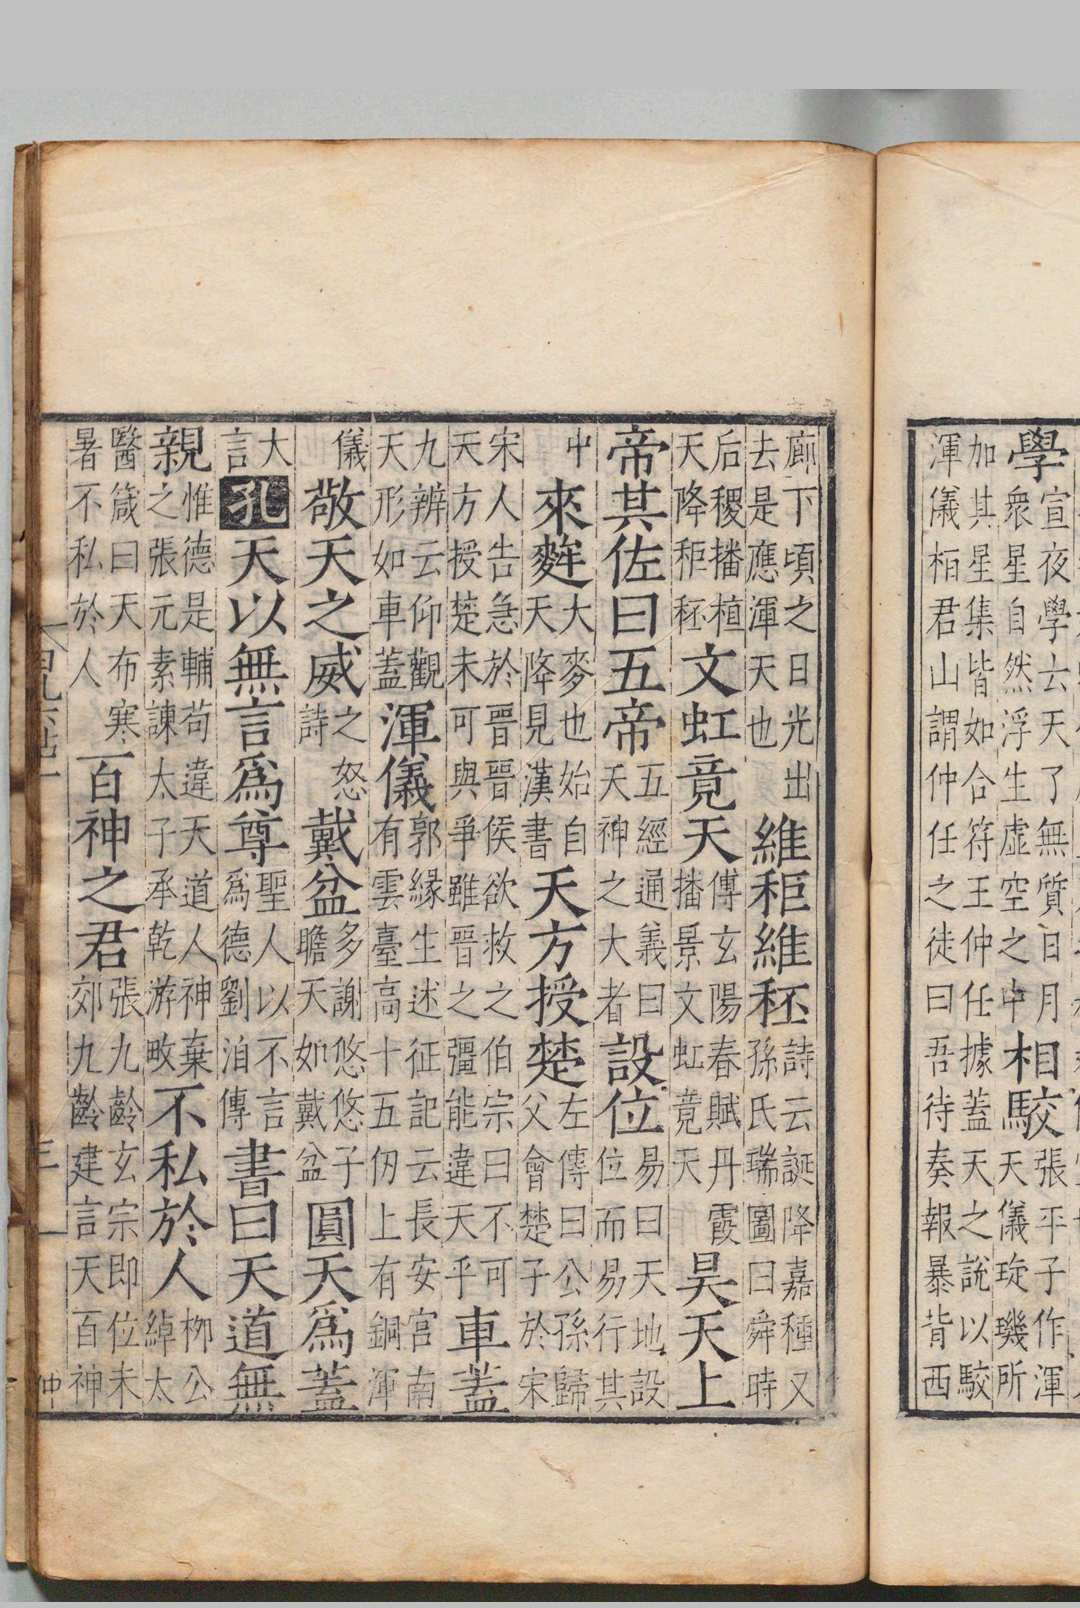 學宣夜學云天了無質日月衆星自然浮生虛空之中相駮張平子作渾天儀琁璣所
加其星集皆如合符王仲任據蓋天之說以駮
渾儀栢君山謂仲任之徒曰吾待奏報暴背西
廊下頃之日光出去是應渾天也維秬維秠詩云誕降嘉種又孫氏瑞圖曰舜時
后稷播植天降秬秠文虹竟天傅玄陽春賦丹霞播景文虹竟天昊天上
帝其佐曰五帝五經通義曰天神之大者設位易曰天地設位而易行其
中來麰大麥也始自天降見漢書天方授楚左傳曰公孫歸父會楚子於宋
宋人告急於晉晉侯欲救之伯宗曰不可天方授楚未可與爭雖晉之彊能違天乎車蓋
九辨云仰觀天形如車蓋渾儀郭緣生述征記云長安宮南有雲臺高十五仞上有銅渾
儀敬天之威之怒詩戴盆多謝悠悠子瞻天如戴盆圓天爲蓋
大言孔天以無言爲尊聖人以不言爲德劉洎傳書曰天道無
親惟德是輔苟違天道人神棄之張元素諫太子承乾游畋不私於人柳公綽太
醫箴曰天布寒暑不私於人百神之君張九齡玄宗即位未郊九齡建言天百神
三
仲